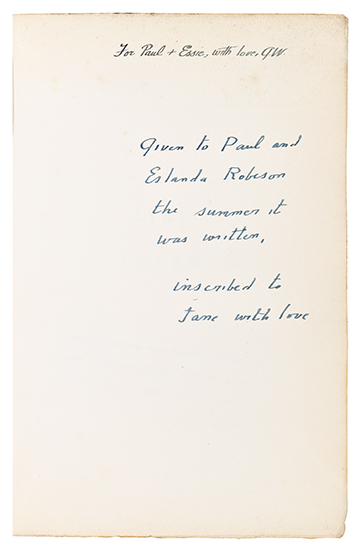 For Paul + Essie, with love, GW.
Given to Paul and
Eslanda Robeson
the summer it
was written,
inscribed to
Jane with love